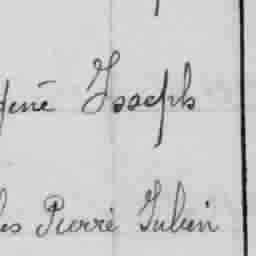 René Joseph
les Pierre Julien